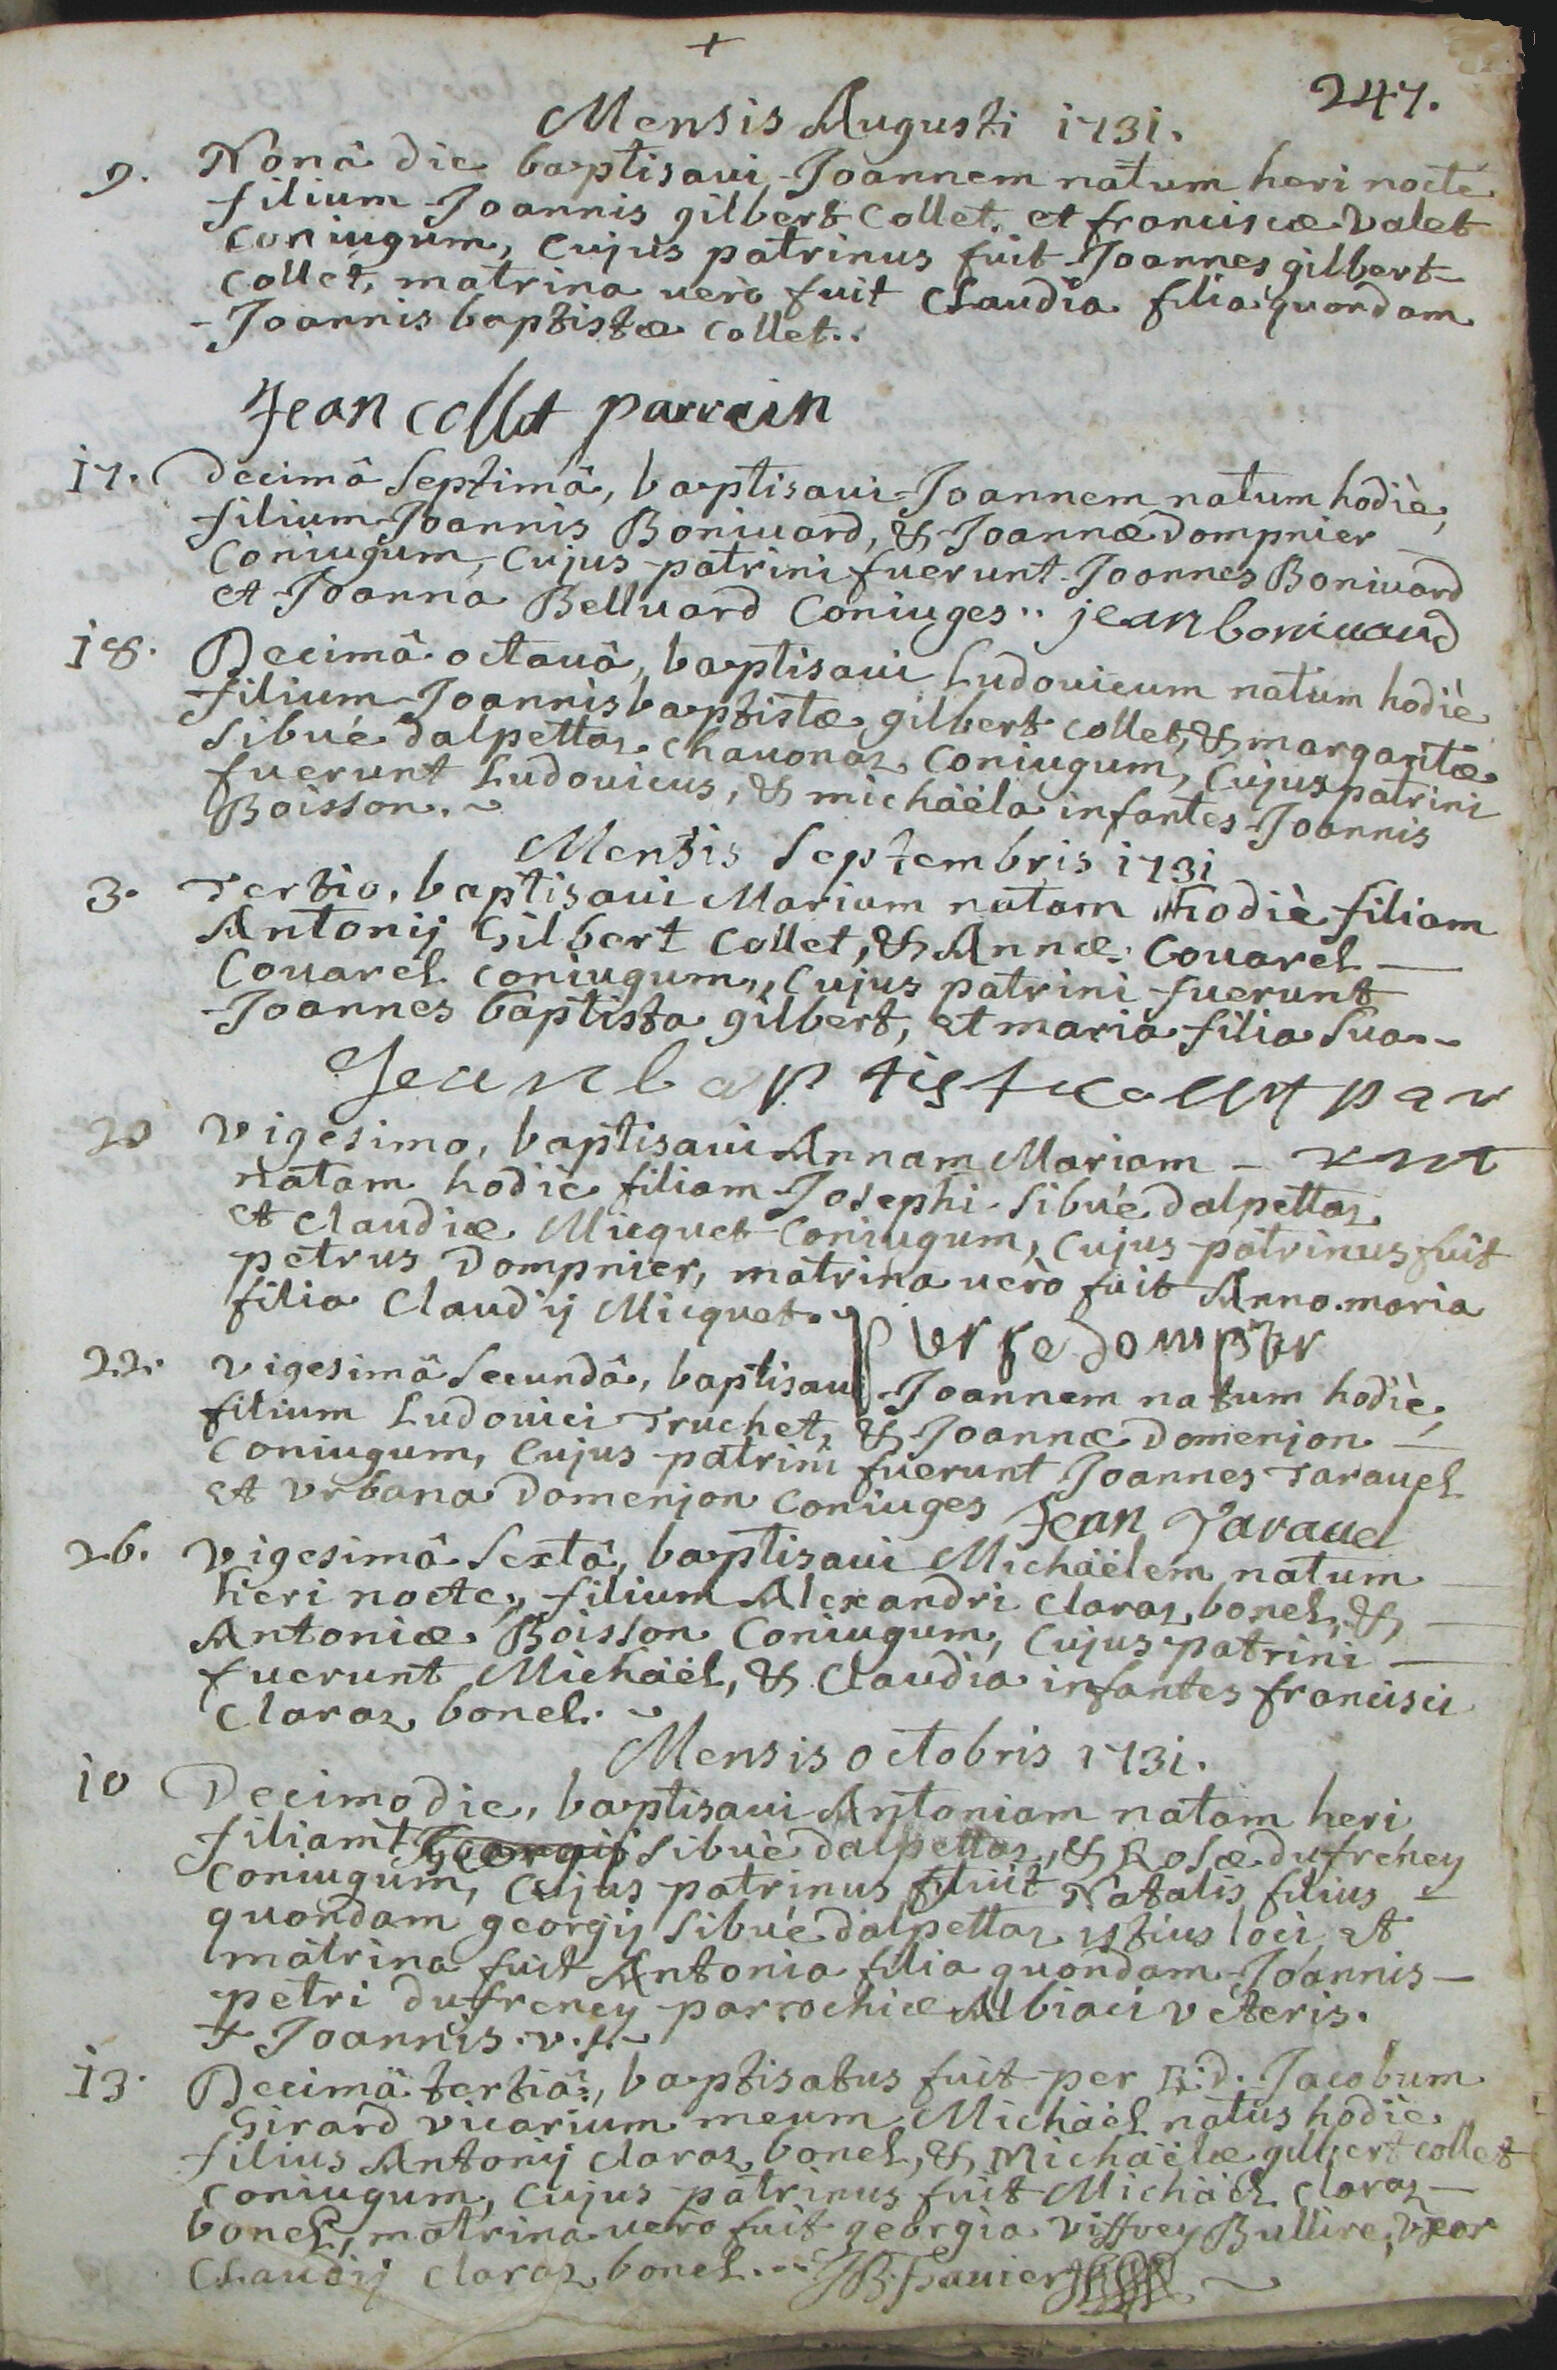 +
247.
Mensis Augusti 1731.
9. Nonâ die baptisaui Joannem natum heri nocte
filium Joannis gilbert Collet, et franciscæ Valet
Coniugum, Cujus patrinus fuit Joannes gilbert
Collet, matrina uerò fuit Claudia filia quondam
Joannis baptistæ Collet..
Jean collet parrain
17. Decimâ Septimâ, baptisaui Joannem natum hodiè,
filium Joannis Boniuard, & Joannæ Dompnier
Coniugum, Cujus patrini fuerunt Joannes Boniuard
et Joanna Belluard Coniuges.. jean boniuard
18. Decimâ octauâ, baptisaui Ludouicum natum hodiè
filium Joannis baptistæ gilbert Collet, & margaritæ
Sibué dalpettaz chauonaz Coniugum, Cujus patrini
fuerunt Ludouicus, & michaëla infantes Joannis
Boisson.
Mensis Septembris 1731
3. Tertio, baptisaui Mariam natam hodiè filiam
Antonij Gilbert Collet, & Annæ Couarel
Couarel coniugum, Cujus patrini fuerunt
Joannes baptista gilbert, et maria filia Sua
Jean baptiste collet par
20 Vigesimo, baptisaui Annam Mariam
natam hodie filiam Josephi Sibué dalpettaz
et Claudiæ Micquet Coniugum, Cujus patrinus fuit
petrus Dompnier, matrina uerò fuit Anna maria
filia Claudij Micquet. pierre dompnier
22. Vigesimâ Secundâ, baptisaui Joannem natum hodiè,
filium Ludouici Truchet, & Joannæ Domenjon
Coniugum, Cujus patrini fuerunt Joannes Tarauel
et Vrbana Domenjon Coniuges Jean Tarauel
26. Vigesimâ Sextâ, baptisaui Michäelem natum
heri nocte, filium Alexandri Claraz bonel, &
Antoniæ Boisson Coniugum, Cujus patrini
fuerunt Michäel, & Claudia infantes francisci
Claraz bonel.
Mensis octobris 1731.
10 Decimo die, baptisaui Antoniam natam heri
filiam + Georgij Sibué dalpettaz, & Rosæ dufreney
Coniugum, Cujus patrinus fuit Natalis filius
quondam georgij Sibué dalpettaz istius loci et
matrina fuit Antonia filia quondam Joannis
petri dufreney parrochiæ Albiaci Veteris.
+ Joannis. v. s.
13. Decimâ tertiâ, baptisatus fuit per R.d. Jacobum
Girard vicarium meum Michäel natus hodie
filius Antonij Claraz bonel, & Michäelæ gilbert collet
Coniugum, Cujus patrinus fuit Michäel Claraz
bonel, matrina uerò fuit georgia Viffrey Bullire, Vxor
Claudij Claraz bonel.